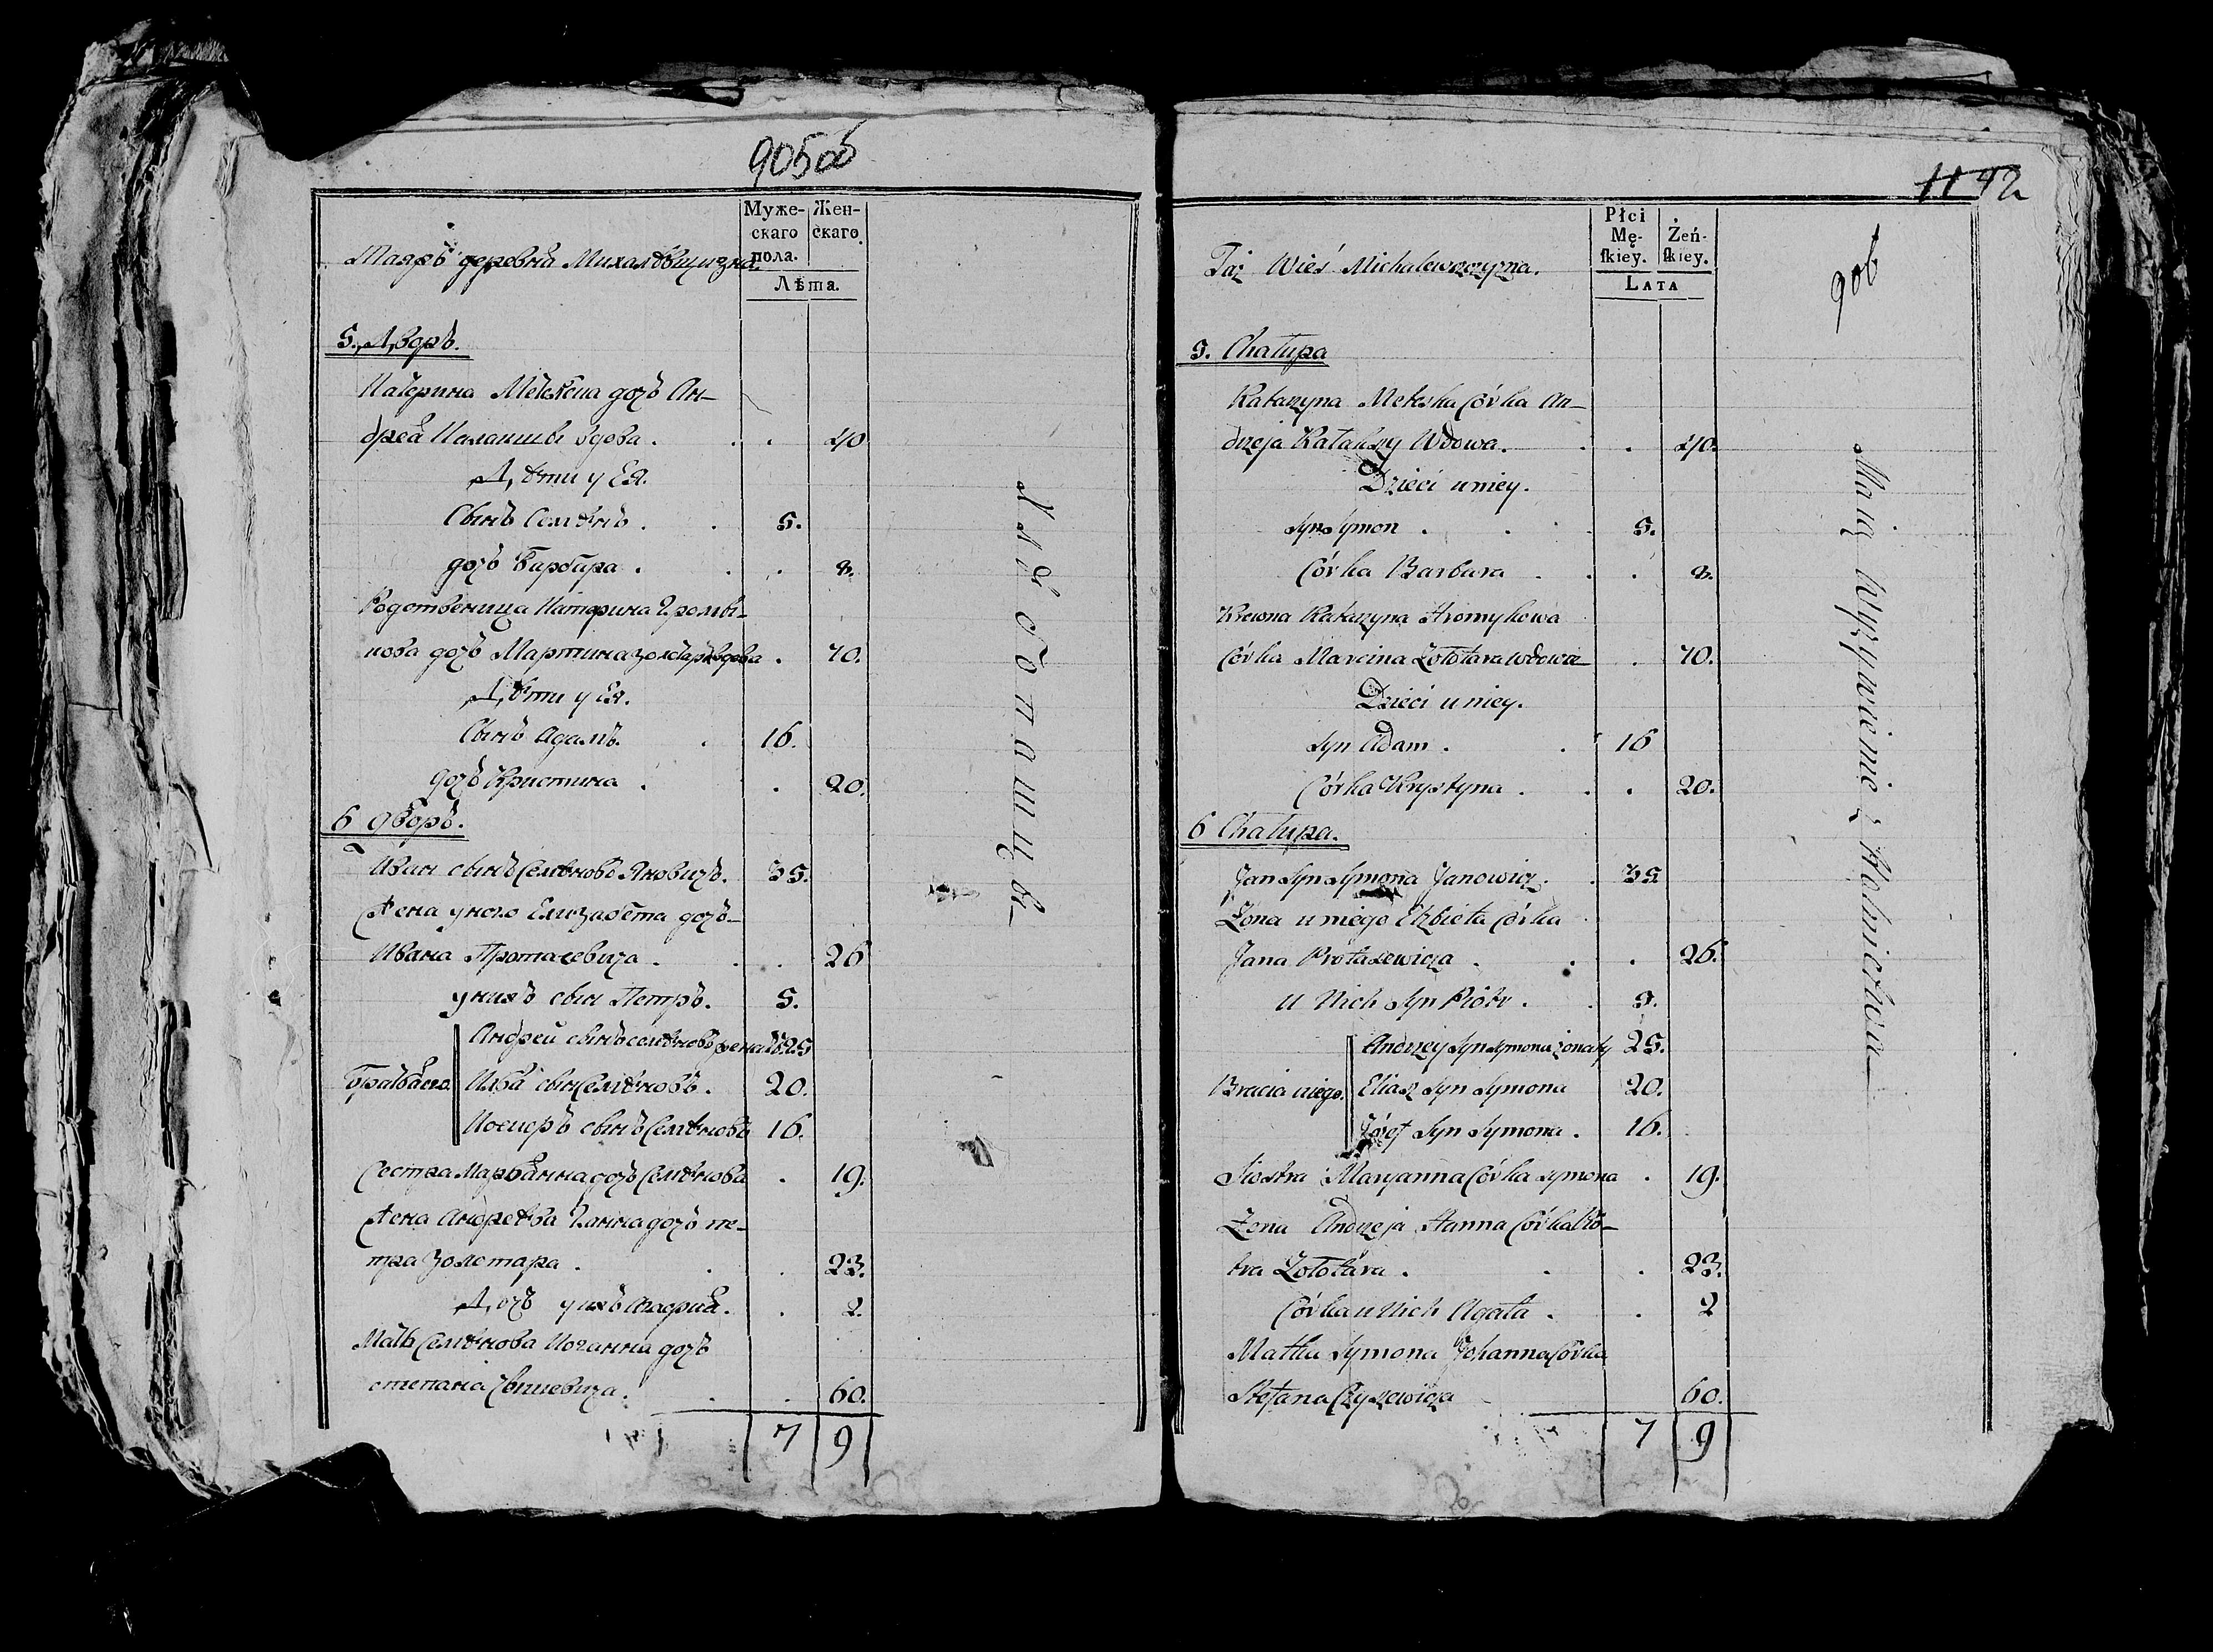 905об
Муже-
скаго
пола.
Жен-
скаго.
Лѣта.
Таяжъ деревня Михалѣвщизна.
5. Дворъ.
Катерина Метекена дочъ Ан-
дрея Калакши вдова . . . 40
Дѣти у Ея.
Сынъ Семѣнъ . . 5.
дочъ Барбара . . . 8.
Родственица Катерина Громы-
кова дочъ Мартина Золотара вдова . 70.
Дѣти у Ея.
Сынъ Адамъ. . 16.
дочъ Кристина . . 20.
6 Дворъ.
Иван сынъ Семѣновъ Яновичъ. 35.
Жена у него Елизавета дочъ
Ивана Протасевича . . . 26
у нихъ сын Петръ. 5.
Андрей сынъ Семѣновъ женатъ 25
братья его Илья сын Семѣновъ. 20.
Иосифъ сынъ Семѣновъ 16.
Сестра Марьянна дочъ Семѣнова . 19.
Жена Андрѣева Ганна дочъ Пе-
тра Золотара . . . 23.
Дочъ у нихъ . . 2.
Мать Семѣнова Иоганна дочъ
Степана Чышевича . . . 60.
7 9
1142
906
Płci
Mę-
ſkiey.
Żeń-
ſkiey.
LATA
Taż Wieś Michalewszczyzna.
5. Chałupa
Katarzyna Meteska Córka An-
drzeja Kałakszy Wdowa. . . 40.
Dzieci u niey.
Syn Symon . . . 5.
Córka Barbara . . . 8.
Krewna Katarzyna Hromykowa
Córka Marcina Zołotara wdowa . 70.
Dzieci u niey.
Syn Adam . . 16
Córka Krystyna . . . 20.
6 Chałupa.
Jan Syn Symona Janowicz . . 35
Żona u niego Elżbieta Córka
Jana Protasewicza . . . 26.
u Nich Syn Piotr . . 5.
Andrzey Syn Symona żonaty 25.
Bracia u niego. Eliasz Syn Symona 20.
Józef Syn Symona . 16.
Siostra Maryanna Córka Symona . 19.
Żona Andrzeja Hanna Córka Pio-
tra Zołotara . . . 23.
Córka u Nich Agata . . 2
Matka Symona Johanna Córka
Stefana Czyszewicza 60.
7 9
Mają Wyżywienie z Rolnictwa